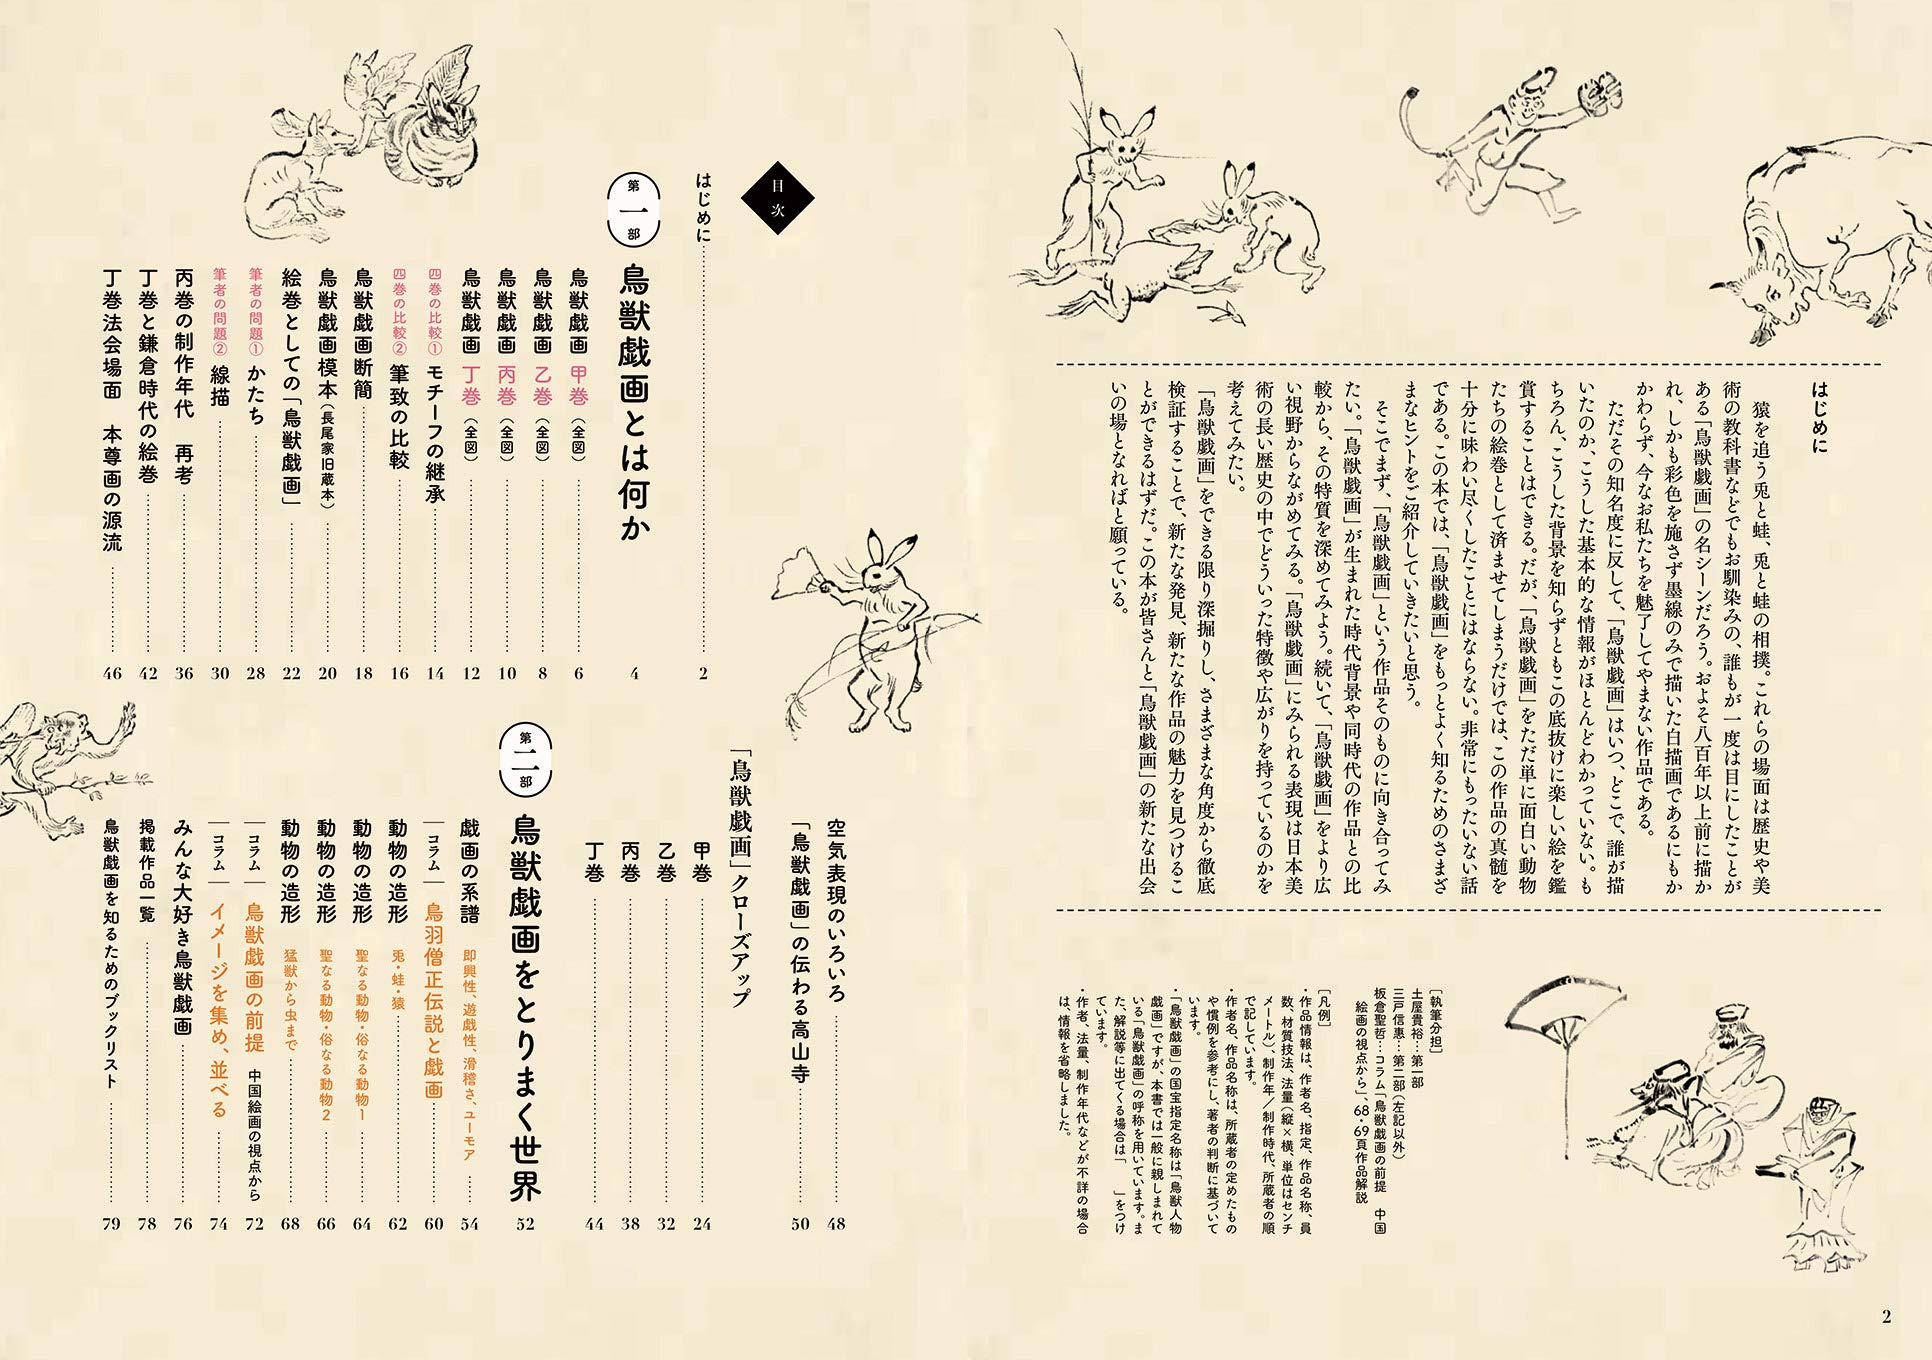 はじめに
猿を追う兎と蛙、兎と蛙の相撲。これらの場面は歴史や美
術の教科書などでもお馴染みの、誰もが一度は目にしたことが
ある「鳥獣戯画」の名シーンだろう。およそ八百年以上前に描か
れ、しかも彩色を施さず墨線のみで描いた白描画であるにもか
かわらず、今なお私たちを魅了してやまない作品である。
ただその知名度に反して、「鳥獣戯画」はいつ、どこで、誰が描
いたのか、こうした基本的な情報がほとんどわかっていない。も
ちろん、こうした背景を知らずともこの底抜けに楽しい絵を鑑
賞することはできる。だが、「鳥獣戯画」をただ単に面白い動物
たちの絵巻として済ませてしまうだけでは、この作品の真髄を
十分に味わい尽くしたことにはならない。非常にもったいない話
である。この本では、「鳥獣戯画」をもっとよく知るためのさまざ
まなヒントをご紹介していきたいと思う。
そこでまず、「鳥獣戯画」という作品そのものに向き合ってみ
たい。「鳥獣戯画」が生まれた時代背景や同時代の作品との比
較から、その特質を深めてみよう。続いて、「鳥獣戯画」をより広
い視野からながめてみる。「鳥獣戯画」にみられる表現は日本美
術の長い歴史の中でどういった特徴や広がりを持っているのかを
考えてみたい。
「鳥獣戯画」をできる限り深掘りし、さまざまな角度から徹底
検証することで、新たな発見、新たな作品の魅力を見つけるこ
とができるはずだ。この本が皆さんと「鳥獣戯画」の新たな出会
いの場となればと願っている。
［執筆分担］
土屋貴裕…第一部
三戸信惠…第二部（左記以外）
板倉聖哲…コラム「鳥獣戯画の前提　中国
絵画の視点から」、68・69頁作品解説
［凡例］
・作品情報は、作者名、指定、作品名称、員
数、材質技法、法量（縦×横、単位はセンチ
メートル）、制作年／制作時代、所蔵者の順
で記しています。
・作者名、作品名称は、所蔵者の定めたもの
や慣例を参考にし、著者の判断に基づいて
います。
・「鳥獣戯画」の国宝指定名称は「鳥獣人物
戯画」ですが、本書では一般に親しまれて
いる「鳥獣戯画」の呼称を用いています。ま
た、解説等に出てくる場合は「　」をつけ
ています。
・作者、法量、制作年代などが不詳の場合
は、情報を省略しました。
2
目次
はじめに 2
第一部 鳥獣戯画とは何か 4
鳥獣戯画 甲巻（全図） 6
鳥獣戯画 乙巻（全図） 8
鳥獣戯画 丙巻（全図） 10
鳥獣戯画 丁巻（全図） 12
四巻の比較① モチーフの継承 14
四巻の比較② 筆致の比較 16
鳥獣戯画断簡 18
鳥獣戯画模本（長尾家旧蔵本） 20
絵巻としての「鳥獣戯画」 22
筆者の問題① かたち 28
筆者の問題② 線描 30
丙巻の制作年代　再考 36
丁巻と鎌倉時代の絵巻 42
丁巻法会場面　本尊画の源流 46
空気表現のいろいろ 48
「鳥獣戯画」の伝わる高山寺 50
「鳥獣戯画」クローズアップ
甲巻 24
乙巻 32
丙巻 38
丁巻 44
第二部 鳥獣戯画をとりまく世界 52
戯画の系譜 即興性、遊戯性、滑稽さ、ユーモア 54
コラム 鳥羽僧正伝説と戯画 60
動物の造形 兎・蛙・猿 62
動物の造形 聖なる動物・俗なる動物1 64
動物の造形 聖なる動物・俗なる動物2 66
動物の造形 猛獣から虫まで 68
コラム 鳥獣戯画の前提 中国絵画の視点から 72
コラム イメージを集め、並べる 74
みんな大好き鳥獣戯画 76
掲載作品一覧 78
鳥獣戯画を知るためのブックリスト 79